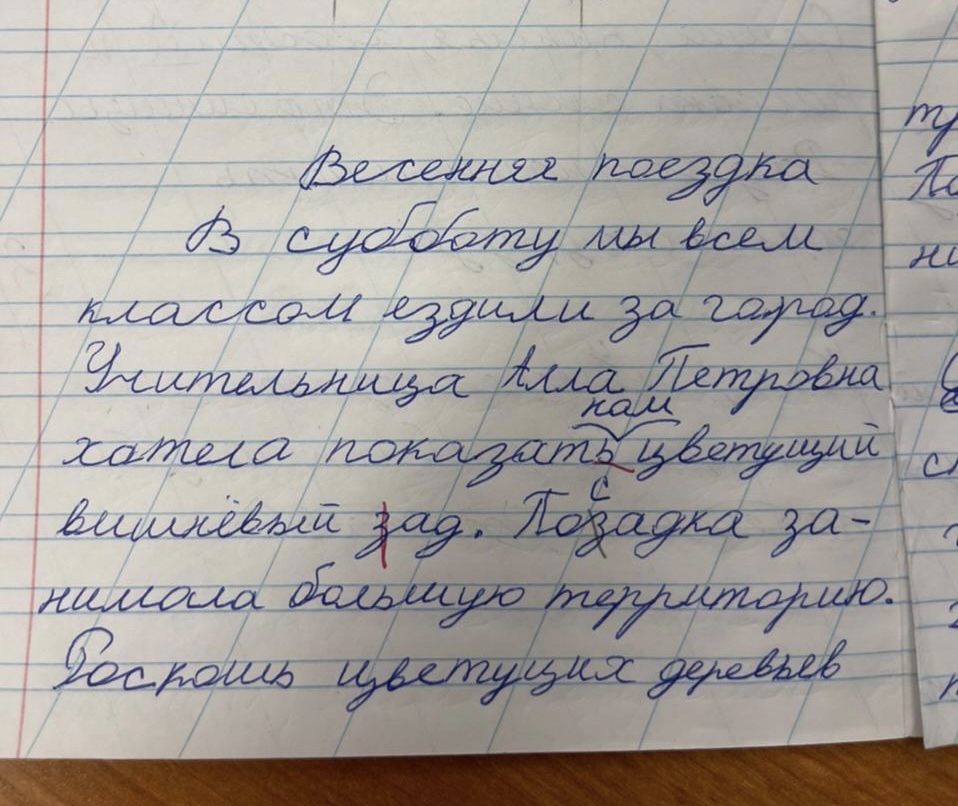 Весенняя поездка
В субботу мы всем
классом ездили за город.
Учительница Алла Петровна
нам
хотела показать цветущий
вишнёвый зад. Позадка за-
с
нимала большую территорию.
Роскошь цветущих деревьев